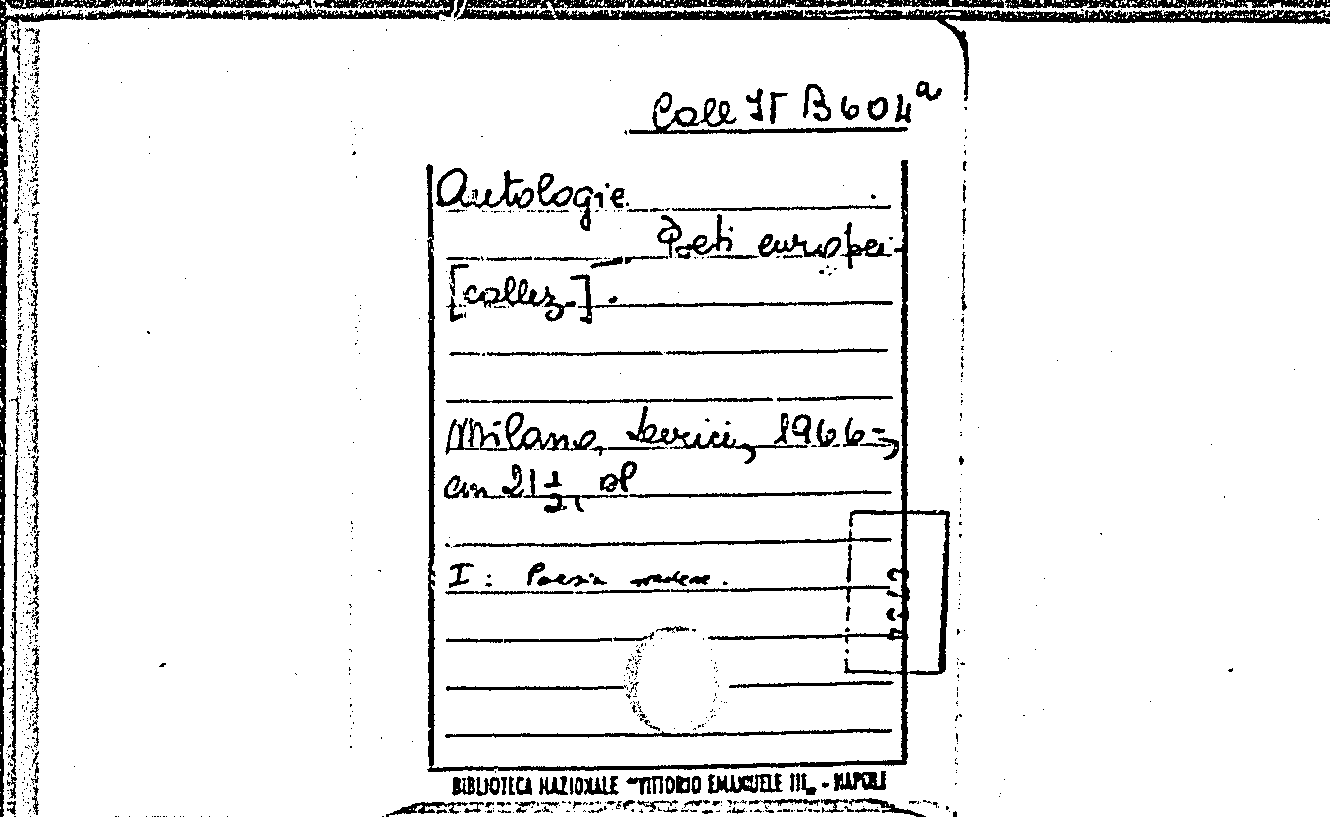 Coll IT B 604 a
Antologie.
Poeti europei -
[collez.] .
Milano, Lerici, 1966-,
cm 21 1/2,
I : Poesia
BIBLIOTECA NAZIONALE "VITTORIO EMANUELE III" - NAPOLI